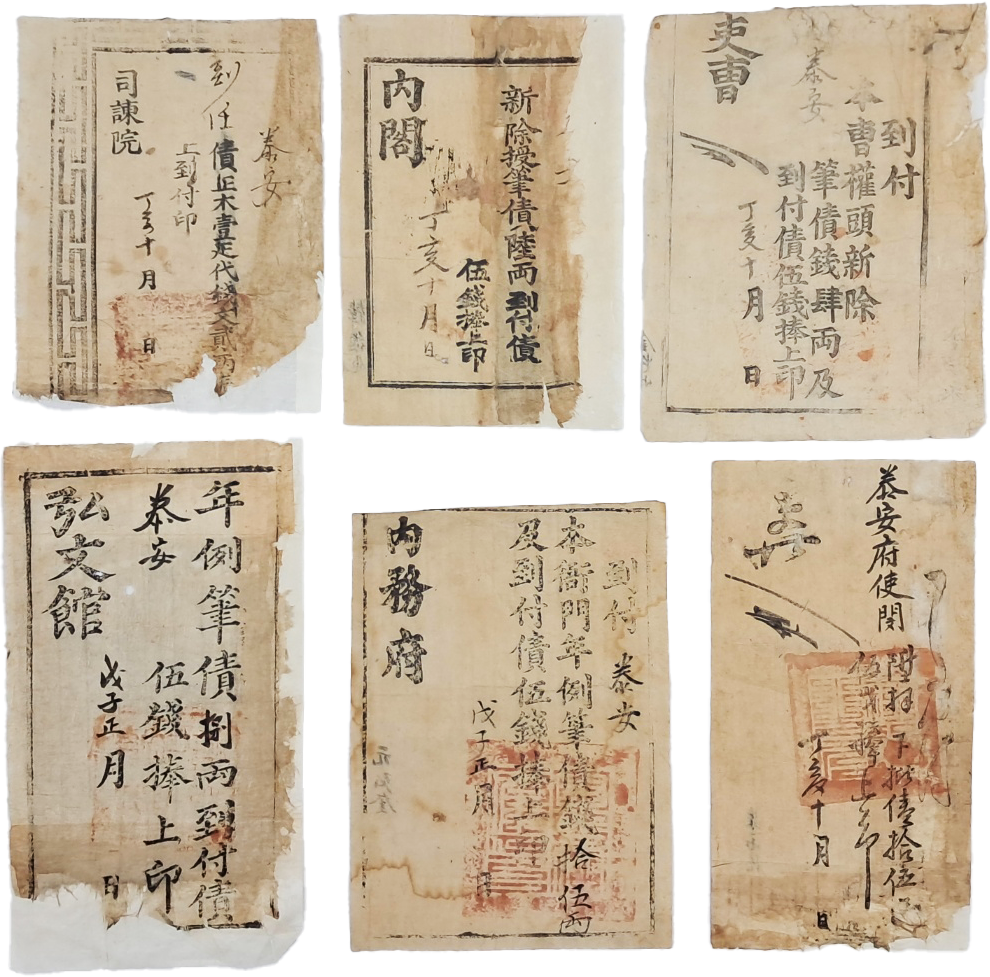 泰安
到任債正木壹疋代錢文貳兩
上到付印
丁亥十月 日
司諫院
新除授筆債陸兩到付債
伍錢捧上印
丁亥十月 日
內閣
到付
本曹權頭新除
筆債錢肆兩及
到付債伍錢捧上印
泰安
丁亥十月 日
吏曹
年例筆債捌兩到付債
泰安 伍錢捧上印
戊子正月 日
弘文館
到付 泰安
本衙門年例筆債錢拾伍兩
及到付債伍錢捧上印
戊子正月 日
內務府
泰安府使開
陞拜下批債拾伍
伍戔捧上印
丁亥十月 日